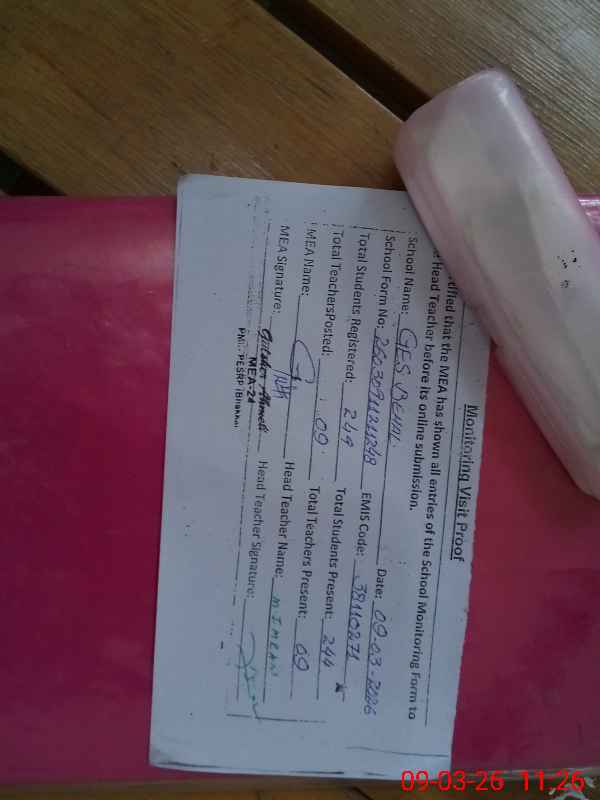 Monitoring Visit Proof
rtified that the MEA has shown all entries of the School Monitoring Form to
e Head Teacher before its online submission.
School Name: GES BEHAL
School Form No: Date: 09-03-2026
Total Students Registered: 249 EMIS Code: 38110271
Total TeachersPosted: 09. Total Students Present: 244
MEA Name: Total Teachers Present: 09
MEA Signature: Head Teacher Name: M. IMRAN
Head Teacher Signature:
MEA-24
09-03-26 11.26